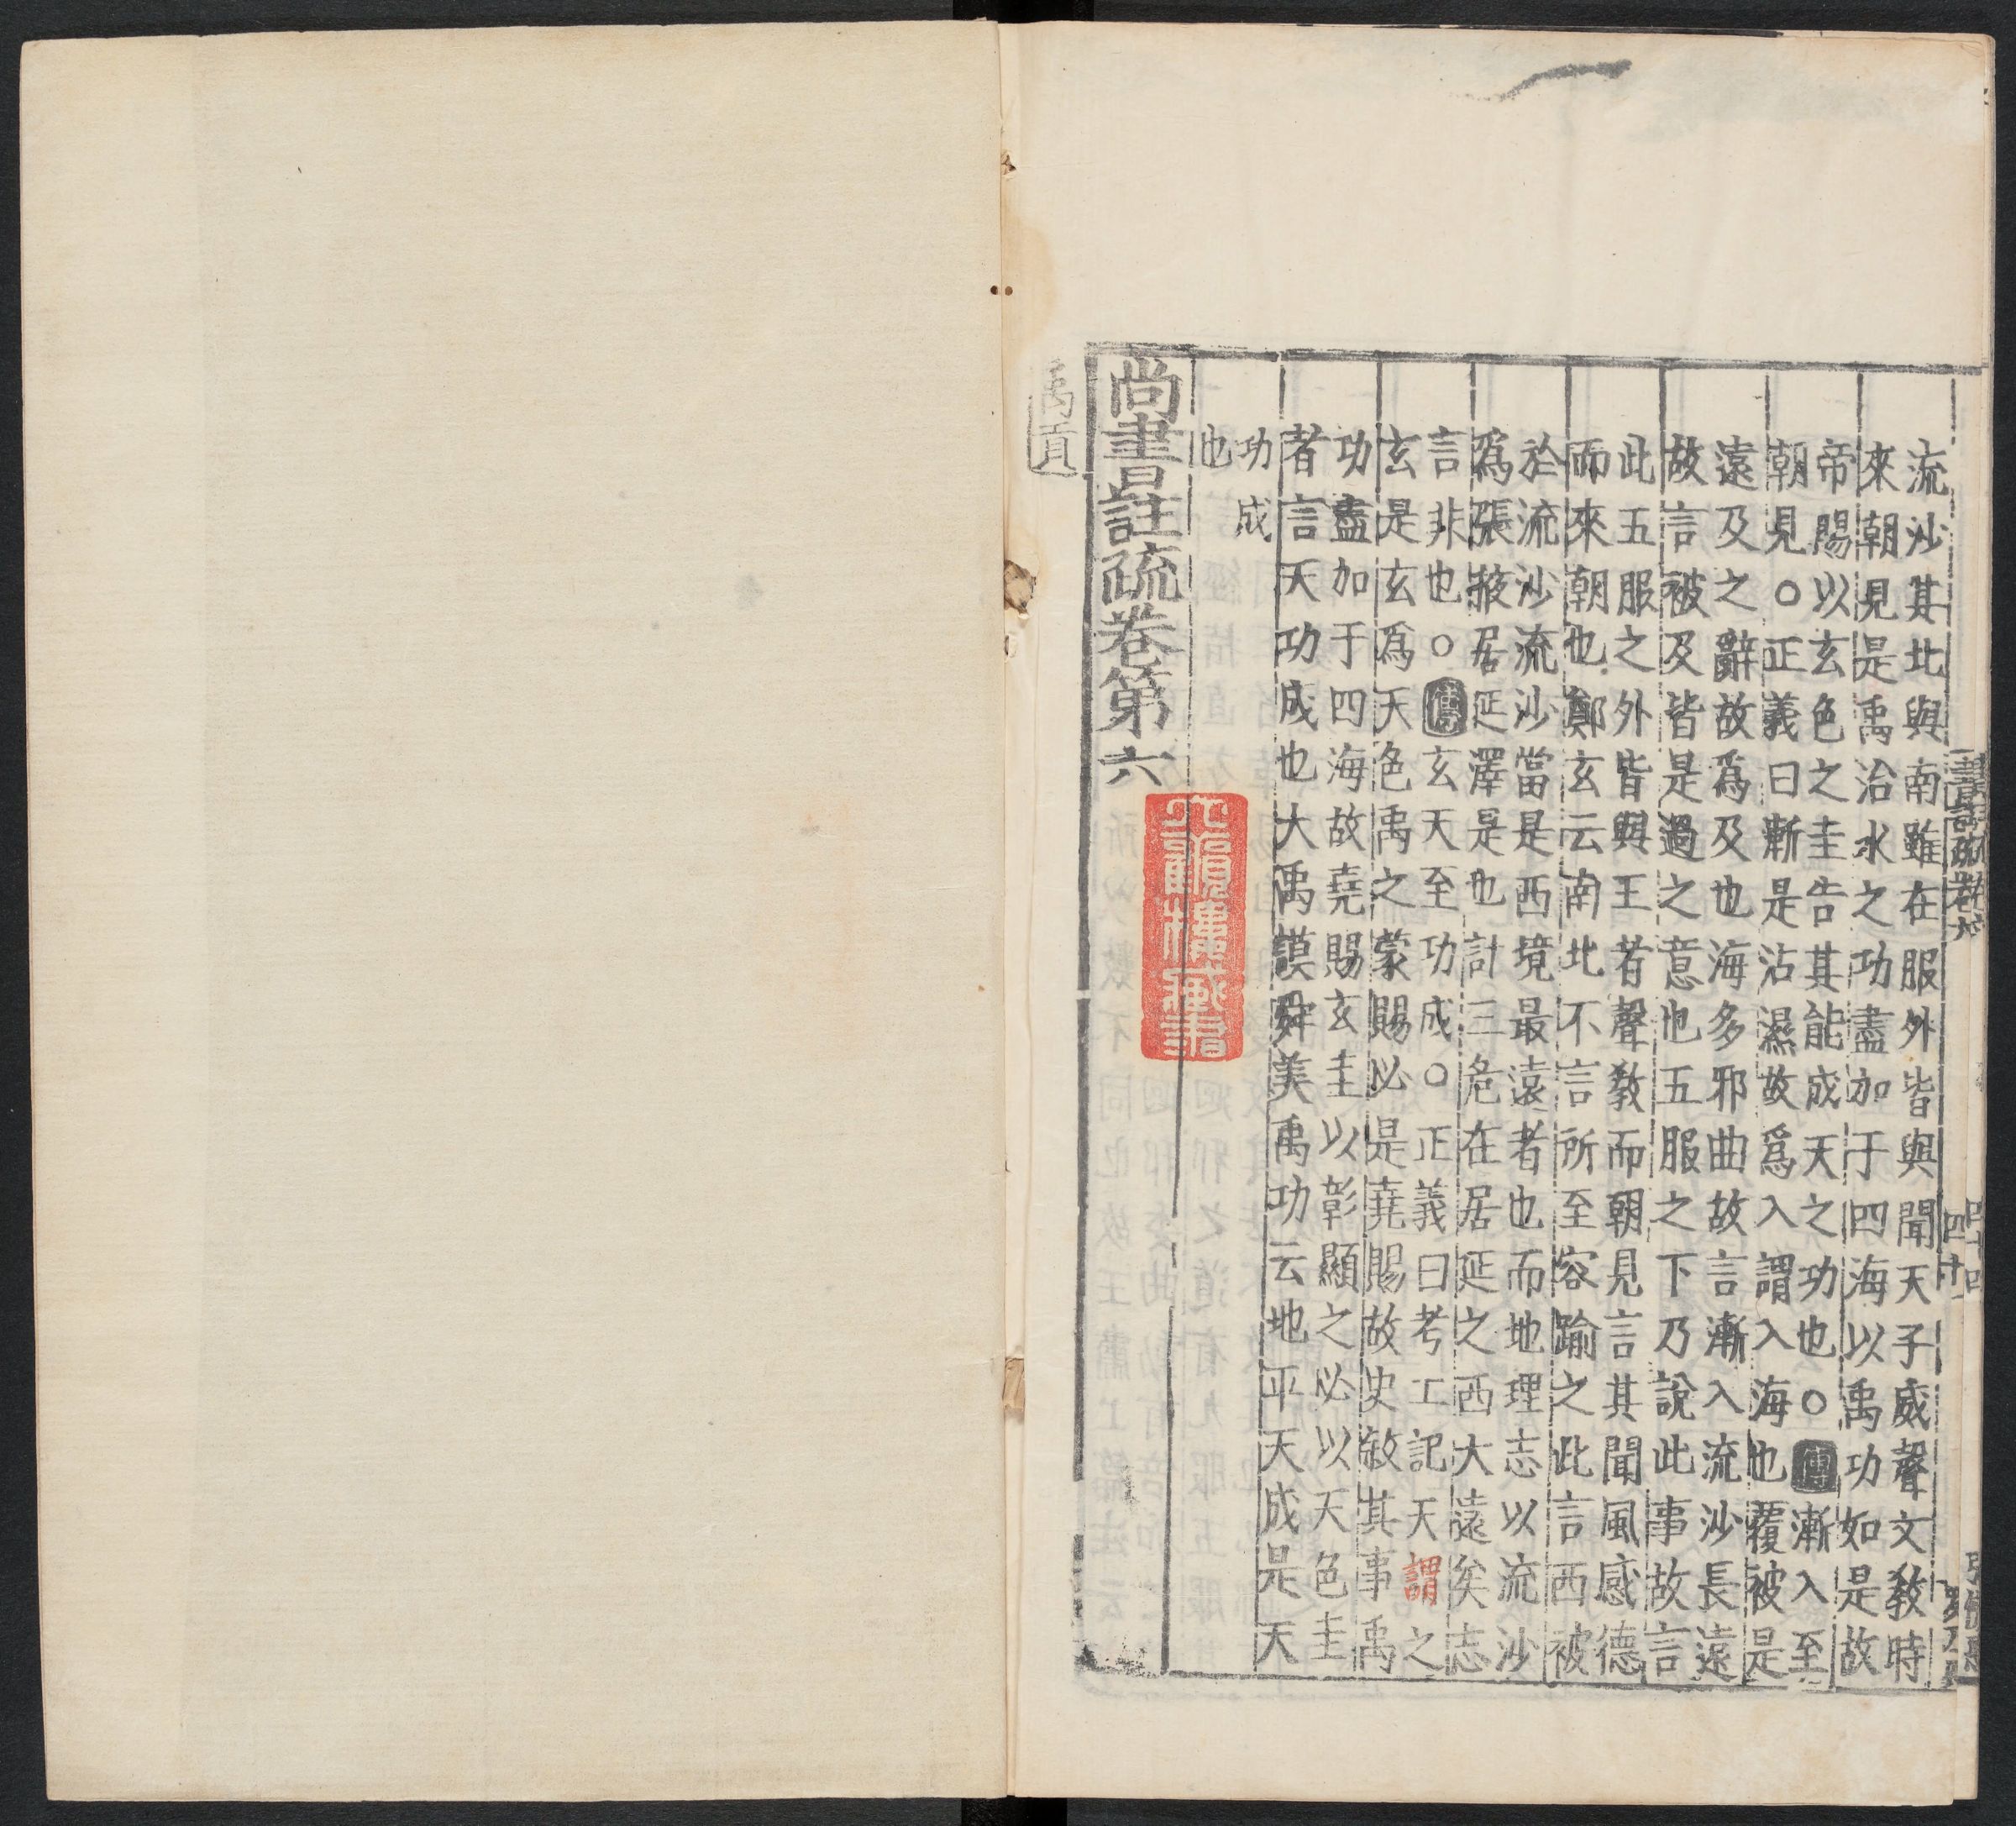 流沙其北與南雖在服外皆與聞天子威聲文敎時
來朝見是禹治水之功盡加于四海以禹功如是故
帝賜以玄色之圭告其能成天之功也○傳漸入至
朝見○正義曰漸是沾濕故爲入謂入海也覆被是
遠及之辭故爲及也海多邪曲故言漸入流沙長遠
故言被及皆是過之意也五服之下乃說此事故言
此五服之外皆與王者聲敎而朝見言其聞風感德
而來朝也鄭玄云南北不言所至容踰之此言西被
於流沙流沙當是西境最遠者也而地理志以流沙
爲張掖居延澤是也計三危在居延之西大遠矣志
言非也○傳玄天至功成○正義曰考工記天謂之
玄是玄爲天色禹之蒙賜必是堯賜故史敘其事禹
功盡加于四海故堯賜玄圭以彰顯之必以天色圭
者言天功成也大禹謨舜美禹功云地平天成是天
功成
也
尚書註疏卷第六
禹貢
書註疏卷六
四十